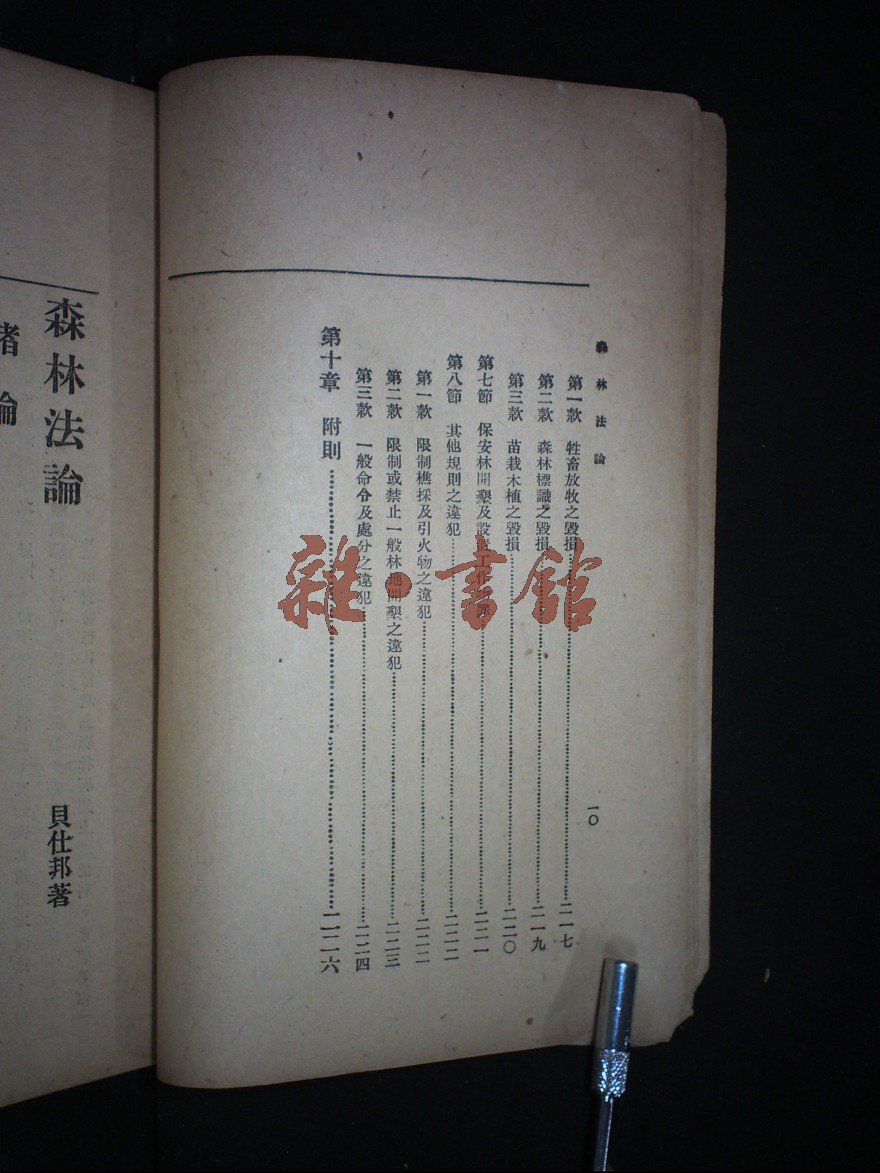 森林法論
一〇
第一款 牲畜放牧之毀損……二一七
第二款 森林標識之毀損……二一九
第三款 苗栽木植之毀損……二二〇
第七節 保安林開墾及設置工作……二二一
第八節 其他規則之違犯……二二二
第一款 限制樵採及引火物之違犯……二二二
第二款 限制或禁止一般林地開墾之違犯……二二三
第三款 一般命令及處分之違犯……二二四
第十章 附則……二二六
森林法論
貝仕邦著
緒論
雜·書館